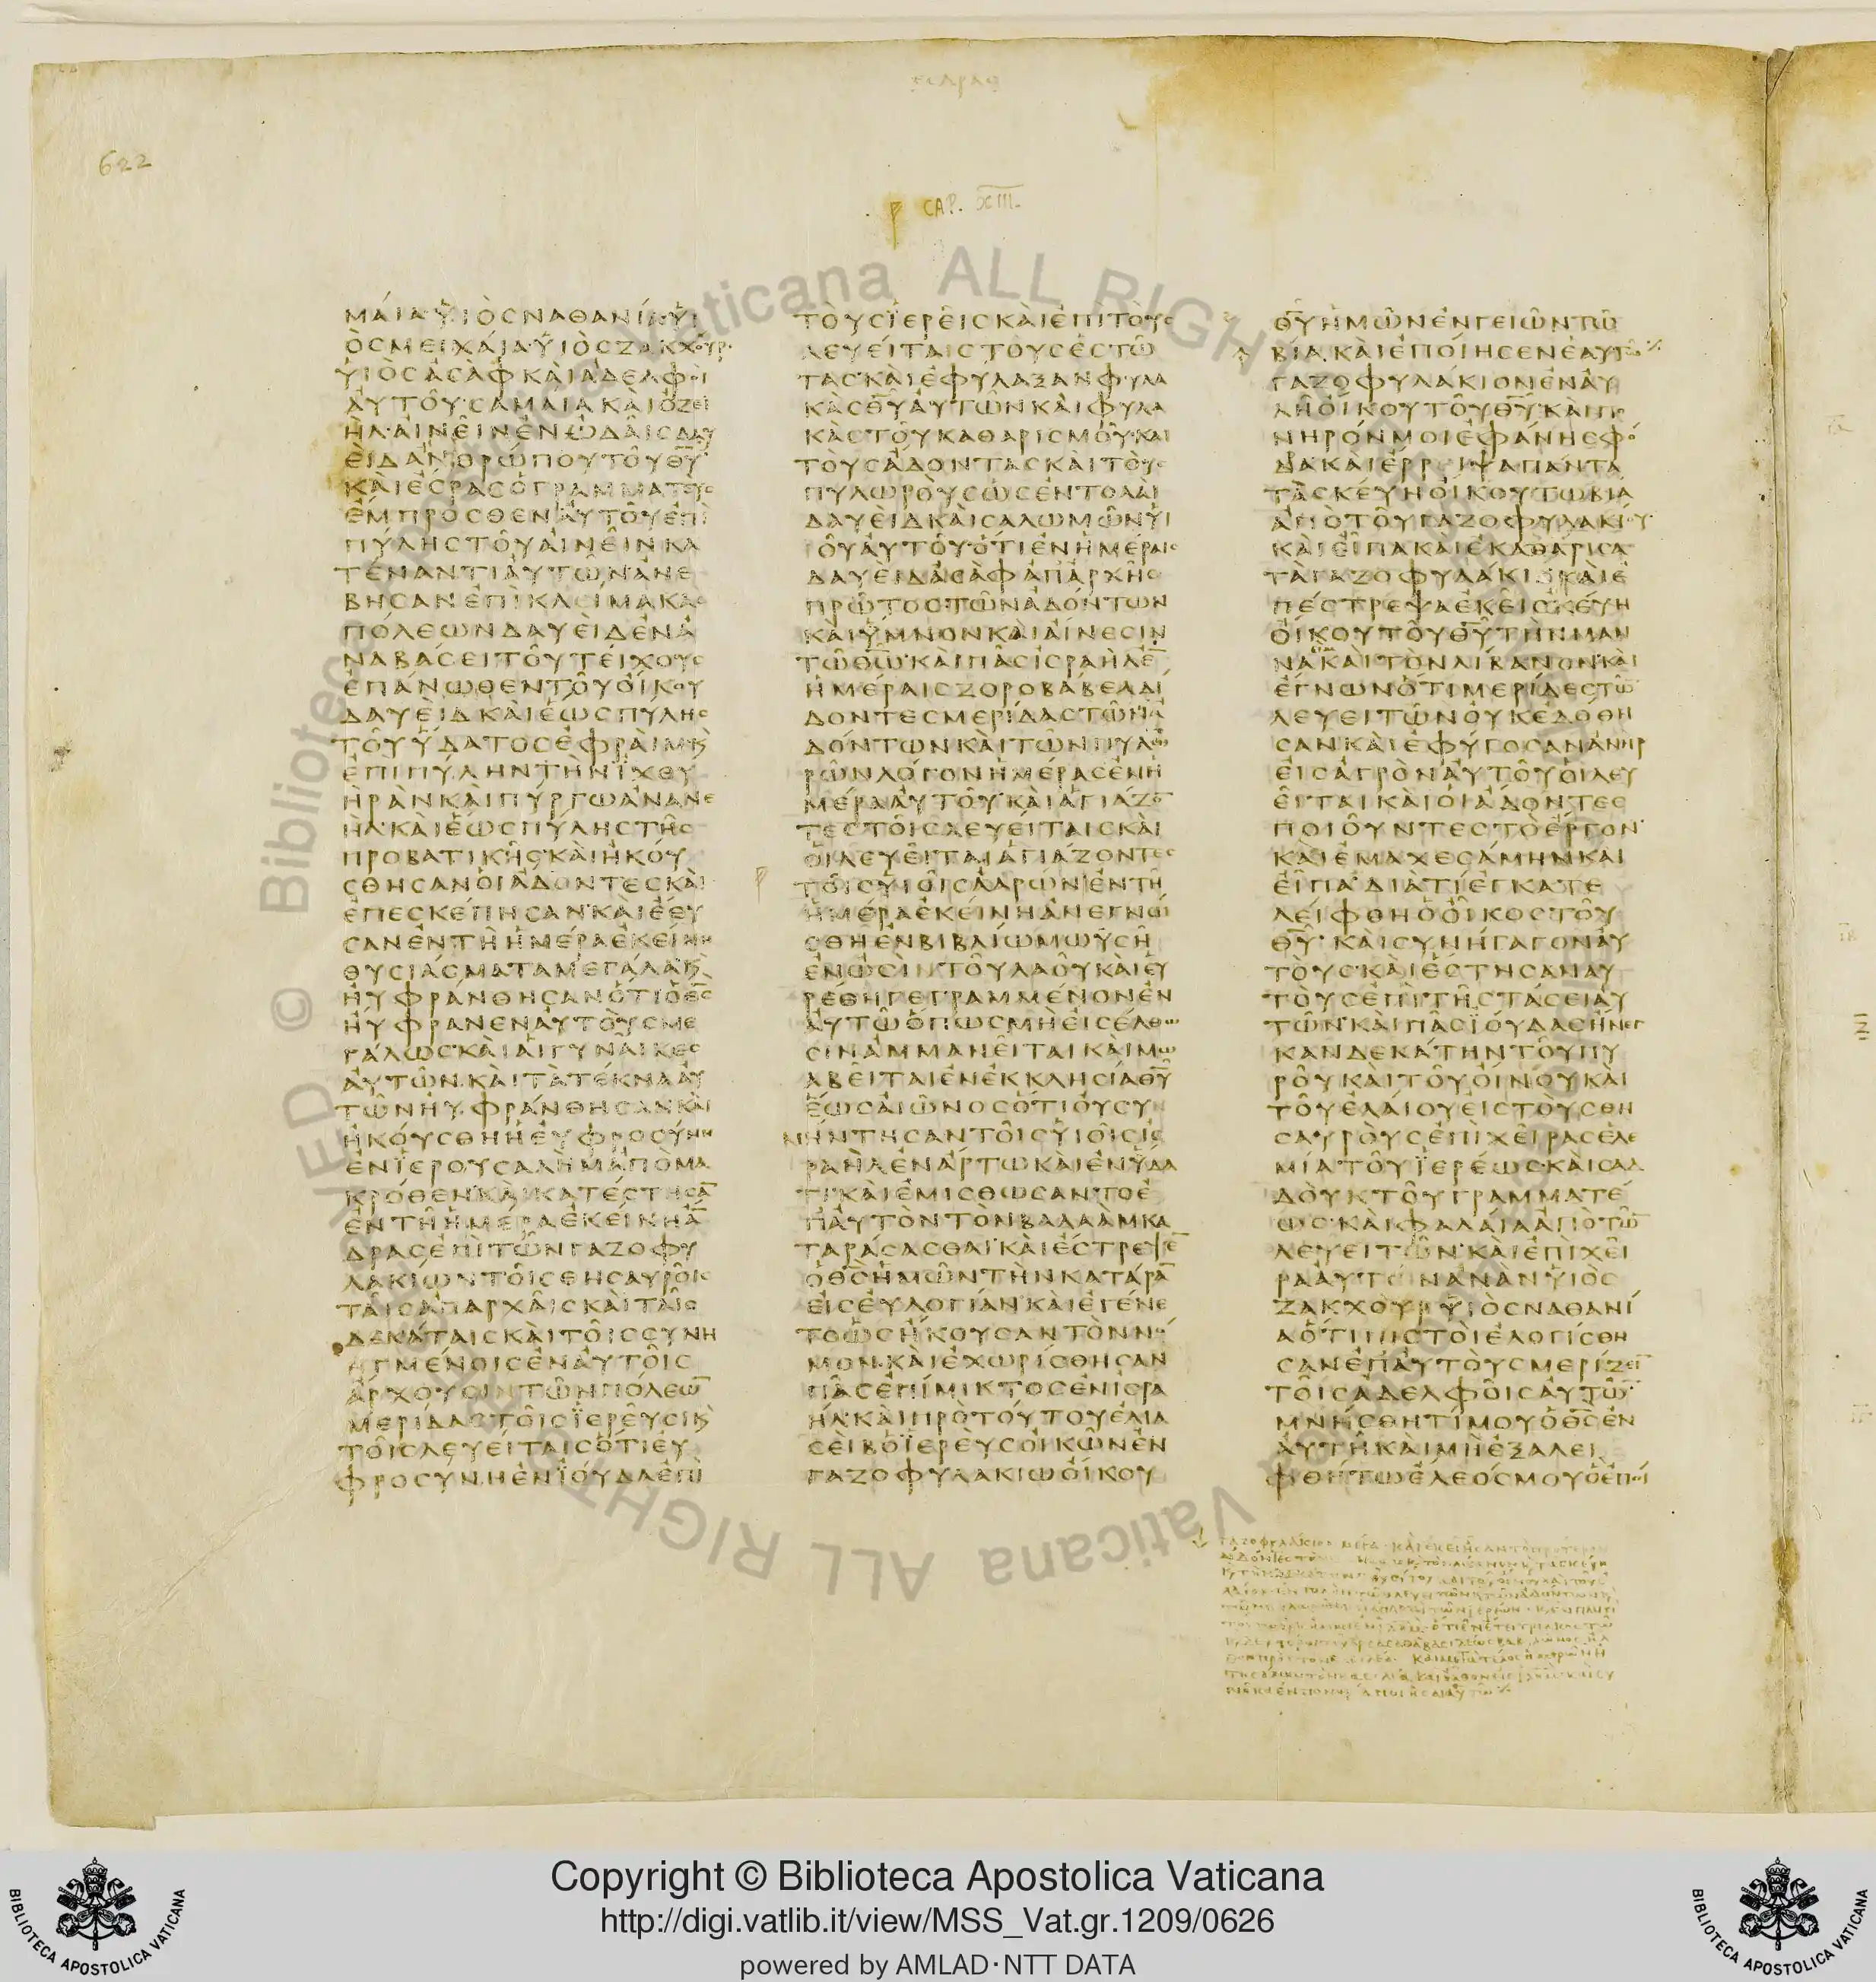 622
εσδρας
CAP. XIII.
ΜΑΙΑ ΥΙΟΣ ΝΑΘΑΝΙΑ ΥΙ
ΟΣ ΜΕΙΧΑΙΑ ΥΙΟΣ ΖΑΚΧΟΥΡ
ΥΙΟΣ ΑΣΑΦ ΚΑΙ ΑΔΕΛΦΟΙ
ΑΥΤΟΥ ΣΑΜΑΙΑ ΚΑΙ ΟΖΕΙ
ΗΛ ΑΙΝΕΙΝ ΕΝ ΩΔΑΙΣ ΔΑΥ
ΕΙΔ ΑΝΘΡΩΠΟΥ ΤΟΥ ΘΥ
ΚΑΙ ΕΣΡΑΣ Ο ΓΡΑΜΜΑΤΕΥΣ
ΕΜΠΡΟΣΘΕΝ ΑΥΤΟΥ ΕΠΙ
ΠΥΛΗΣ ΤΟΥ ΑΙΝΕΙΝ ΚΑ
ΤΕΝΑΝΤΙ ΑΥΤΩΝ ΑΝΕ
ΒΗΣΑΝ ΕΠΙ ΚΛΙΜΑΚΑΣ
ΠΟΛΕΩΝ ΔΑΥΕΙΔ ΕΝ Α
ΝΑΒΑΣΕΙ ΤΟΥ ΤΕΙΧΟΥΣ
ΕΠΑΝΩΘΕΝ ΤΟΥ ΟΙΚΟΥ
ΔΑΥΕΙΔ ΚΑΙ ΕΩΣ ΠΥΛΗΣ
ΤΟΥ ΥΔΑΤΟΣ ΕΦΡΑΙΜ Κ
ΕΠΙ ΠΥΛΗΝ ΤΗΝ ΙΧΘΥ
ΗΡΑΝ ΚΑΙ ΠΥΡΓΩ ΑΝΑΝΕ
ΗΛ ΚΑΙ ΕΩΣ ΠΥΛΗΣ ΤΗΣ
ΠΡΟΒΑΤΙΚΗΣ ΚΑΙ ΗΚΟΥ
ΣΘΗΣΑΝ ΟΙ ΑΔΟΝΤΕΣ ΚΑΙ
ΕΠΕΣΚΕΠΗΣΑΝ ΚΑΙ ΕΘΥ
ΣΑΝ ΕΝ ΤΗ ΗΜΕΡΑ ΕΚΕΙΝΗ
ΘΥΣΙΑΣΜΑΤΑ ΜΕΓΑΛΑ Κ
ΗΥΦΡΑΝΘΗΣΑΝ ΟΤΙ Ο ΘΣ
ΗΥΦΡΑΝΕΝ ΑΥΤΟΥΣ ΜΕ
ΓΑΛΩΣ ΚΑΙ ΑΙ ΓΥΝΑΙΚΕΣ
ΑΥΤΩΝ ΚΑΙ ΤΑ ΤΕΚΝΑ ΑΥ
ΤΩΝ ΗΥΦΡΑΝΘΗΣΑΝ ΚΑΙ
ΗΚΟΥΣΘΗ Η ΕΥΦΡΟΣΥΝΗ
ΕΝ ΙΕΡΟΥΣΑΛΗΜ ΑΠΟ ΜΑ
ΚΡΟΘΕΝ ΚΑΙ ΚΑΤΕΣΤΗΣΑ
ΕΝ ΤΗ ΗΜΕΡΑ ΕΚΕΙΝΗ Α
ΔΡΑΣ ΕΠΙ ΤΩΝ ΓΑΖΟΦΥ
ΛΑΚΙΩΝ ΤΟΙΣ ΘΗΣΑΥΡΟΙΣ
ΤΑΙΣ ΑΠΑΡΧΑΙΣ ΚΑΙ ΤΑΙΣ
ΔΕΚΑΤΑΙΣ ΚΑΙ ΤΟΙΣ ΣΥΝΗ
ΓΜΕΝΟΙΣ ΕΝ ΑΥΤΟΙΣ
ΑΡΧΟΥΣΙΝ ΤΩΝ ΠΟΛΕΩ
ΜΕΡΙΔΑΣ ΤΟΙΣ ΙΕΡΕΥΣΙ Κ
ΤΟΙΣ ΛΕΥΕΙΤΑΙΣ ΟΤΙ ΕΥ
ΦΡΟΣΥΝΗ ΕΝ ΙΟΥΔΑ ΕΠΙ
ΤΟΥΣ ΙΕΡΕΙΣ ΚΑΙ ΕΠΙ ΤΟΥΣ
ΛΕΥΕΙΤΑΙΣ ΤΟΥΣ ΕΣΤΩ
ΤΑΣ ΚΑΙ ΕΦΥΛΑΞΑΝ ΦΥΛΑ
ΚΑΣ ΘΥ ΑΥΤΩΝ ΚΑΙ ΦΥΛΑ
ΚΑΣ ΤΟΥ ΚΑΘΑΡΙΣΜΟΥ ΚΑΙ
ΤΟΥΣ ΑΔΟΝΤΑΣ ΚΑΙ ΤΟΥΣ
ΠΥΛΩΡΟΥΣ ΩΣ ΕΝΤΟΛΑΙ
ΔΑΥΕΙΔ ΚΑΙ ΣΑΛΩΜΩΝ ΥΙ
ΟΥ ΑΥΤΟΥ ΟΤΙ ΕΝ ΗΜΕΡΑΙΣ
ΔΑΥΕΙΔ ΑΣΑΦ ΑΠ ΑΡΧΗΣ
ΠΡΩΤΟΣ ΤΩΝ ΑΔΟΝΤΩΝ
ΚΑΙ ΥΜΝΟΝ ΚΑΙ ΑΙΝΕΣΙΝ
ΤΩ ΘΩ ΚΑΙ ΠΑΣ ΙΣΡΑΗΛ Ε
ΗΜΕΡΑΙΣ ΖΟΡΟΒΑΒΕΛ ΑΙ
ΔΟΝΤΕΣ ΜΕΡΙΔΑΣ ΤΩΝ Α
ΔΟΝΤΩΝ ΚΑΙ ΤΩΝ ΠΥΛΩ
ΡΩΝ ΛΟΓΟΝ ΗΜΕΡΑΣ ΕΝ Η
ΜΕΡΑ ΑΥΤΟΥ ΚΑΙ ΑΓΙΑΖΟ
ΤΕΣ ΤΟΙΣ ΛΕΥΕΙΤΑΙΣ ΚΑΙ
ΟΙ ΛΕΥΕΙΤΑΙ ΑΓΙΑΖΟΝΤΕΣ
ΤΟΙΣ ΥΙΟΙΣ ΑΑΡΩΝ ΕΝ ΤΗ
ΗΜΕΡΑ ΕΚΕΙΝΗ ΑΝΕΓΝΩ
ΣΘΗ ΕΝ ΒΙΒΛΙΩ ΜΩΥΣΗ
ΕΝ ΩΣΙΝ ΤΟΥ ΛΑΟΥ ΚΑΙ ΕΥ
ΡΕΘΗ ΓΕΓΡΑΜΜΕΝΟΝ ΕΝ
ΑΥΤΩ ΟΠΩΣ ΜΗ ΕΙΣΕΛΘΩ
ΣΙΝ ΑΜΜΑΝΕΙΤΑΙ ΚΑΙ ΜΩ
ΑΒΕΙΤΑΙ ΕΝ ΕΚΚΛΗΣΙΑ ΘΥ
ΕΩΣ ΑΙΩΝΟΣ ΟΤΙ ΟΥ ΣΥ
ΝΗΝΤΗΣΑΝ ΤΟΙΣ ΥΙΟΙΣ ΙΣ
ΡΑΗΛ ΕΝ ΑΡΤΩ ΚΑΙ ΕΝ ΥΔΑ
ΤΙ ΚΑΙ ΕΜΙΣΘΩΣΑΝΤΟ Ε
Π ΑΥΤΟΝ ΤΟΝ ΒΑΛΑΑΜ ΚΑ
ΤΑΡΑΣΑΣΘΑΙ ΚΑΙ ΕΣΤΡΕΨΕ
Ο ΘΣ ΗΜΩΝ ΤΗΝ ΚΑΤΑΡΑ
ΕΙΣ ΕΥΛΟΓΙΑΝ ΚΑΙ ΕΓΕΝΕ
ΤΟ ΩΣ ΗΚΟΥΣΑΝ ΤΟΝ ΝΟ
ΜΟΝ ΚΑΙ ΕΧΩΡΙΣΘΗΣΑΝ
ΠΑΣ ΕΠΙΜΙΚΤΟΣ ΕΝ ΙΣΡΑ
ΗΛ ΚΑΙ ΠΡΟ ΤΟΥΤΟΥ ΕΛΙΑ
ΣΕΙΒ Ο ΙΕΡΕΥΣ ΟΙΚΩΝ ΕΝ
ΓΑΖΟΦΥΛΑΚΙΩ ΟΙΚΟΥ
ΘΥ ΗΜΩΝ ΕΝΓΕΙΩΝ ΤΩ
ΒΙΑ ΚΑΙ ΕΠΟΙΗΣΕΝ ΕΑΥΤΩ
ΓΑΖΟΦΥΛΑΚΙΟΝ ΕΝ ΑΥ
ΛΗ ΟΙΚΟΥ ΤΟΥ ΘΥ ΚΑΙ ΠΟ
ΝΗΡΟΝ ΜΟΙ ΕΦΑΝΗ ΣΦΟ
ΔΑ ΚΑΙ ΕΡΡΙΨΑ ΠΑΝΤΑ
ΤΑ ΣΚΕΥΗ ΟΙΚΟΥ ΤΩΒΙΑ
ΑΠΟ ΤΟΥ ΓΑΖΟΦΥΛΑΚΙΟΥ
ΚΑΙ ΕΙΠΑ ΚΑΙ ΕΚΑΘΑΡΙΣΑ
ΤΑ ΓΑΖΟΦΥΛΑΚΙΑ ΚΑΙ Ε
ΠΕΣΤΡΕΨΑ ΕΚΕΙ ΣΚΕΥΗ
ΟΙΚΟΥ ΤΟΥ ΘΥ ΤΗΝ ΜΑΝ
ΝΑ ΚΑΙ ΤΟΝ ΛΙΒΑΝΟΝ ΚΑΙ
ΕΓΝΩΝ ΟΤΙ ΜΕΡΙΔΕΣ ΤΩ
ΛΕΥΕΙΤΩΝ ΟΥΚ ΕΔΟΘΗ
ΣΑΝ ΚΑΙ ΕΦΥΓΟΣΑΝ ΑΝΗΡ
ΕΙΣ ΑΓΡΟΝ ΑΥΤΟΥ ΟΙ ΛΕΥ
ΕΙΤΑΙ ΚΑΙ ΟΙ ΑΔΟΝΤΕΣ
ΠΟΙΟΥΝΤΕΣ ΤΟ ΕΡΓΟΝ
ΚΑΙ ΕΜΑΧΕΣΑΜΗΝ ΚΑΙ
ΕΙΠΑ ΔΙΑ ΤΙ ΕΓΚΑΤΕ
ΛΕΙΦΘΗ Ο ΟΙΚΟΣ ΤΟΥ
ΘΥ ΚΑΙ ΣΥΝΗΓΑΓΟΝ ΑΥ
ΤΟΥΣ ΚΑΙ ΕΣΤΗΣΑΝ ΑΥ
ΤΟΥΣ ΕΠΙ ΤΗ ΣΤΑΣΕΙ ΑΥ
ΤΩΝ ΚΑΙ ΠΑΣ ΙΟΥΔΑΣ ΗΝΕΓ
ΚΑΝ ΔΕΚΑΤΗΝ ΤΟΥ ΠΥ
ΡΟΥ ΚΑΙ ΤΟΥ ΟΙΝΟΥ ΚΑΙ
ΤΟΥ ΕΛΑΙΟΥ ΕΙΣ ΤΟΥΣ ΘΗ
ΣΑΥΡΟΥΣ ΕΠΙ ΧΕΙΡΑ ΣΕΛΕ
ΜΙΑ ΤΟΥ ΙΕΡΕΩΣ ΚΑΙ ΣΑΔ
ΔΟΥΚ ΤΟΥ ΓΡΑΜΜΑΤΕ
ΩΣ ΚΑΙ ΦΑΛΑΙΑ ΑΠΟ ΤΩ
ΛΕΥΕΙΤΩΝ ΚΑΙ ΕΠΙ ΧΕΙ
ΡΑ ΑΥΤΩΝ ΑΝΑΝ ΥΙΟΣ
ΖΑΚΧΟΥΡ ΥΙΟΣ ΝΑΘΑΝΙ
Α ΟΤΙ ΠΙΣΤΟΙ ΕΛΟΓΙΣΘΗ
ΣΑΝ ΕΠ ΑΥΤΟΥΣ ΜΕΡΙΖΕΙ
ΤΟΙΣ ΑΔΕΛΦΟΙΣ ΑΥΤΩ
ΜΝΗΣΘΗΤΙ ΜΟΥ Ο ΘΣ ΕΝ
ΑΥΤΗ ΚΑΙ ΜΗ ΕΞΑΛΕΙ
ΦΘΗΤΩ ΕΛΕΟΣ ΜΟΥ Ο ΕΠΟΙ
Copyright © Biblioteca Apostolica Vaticana
http://digi.vatlib.it/view/MSS_Vat.gr.1209/0626
powered by AMLAD·NTT DATA
BIBLIOTECA APOSTOLICA VATICANA
BIBLIOTECA APOSTOLICA VATICANA